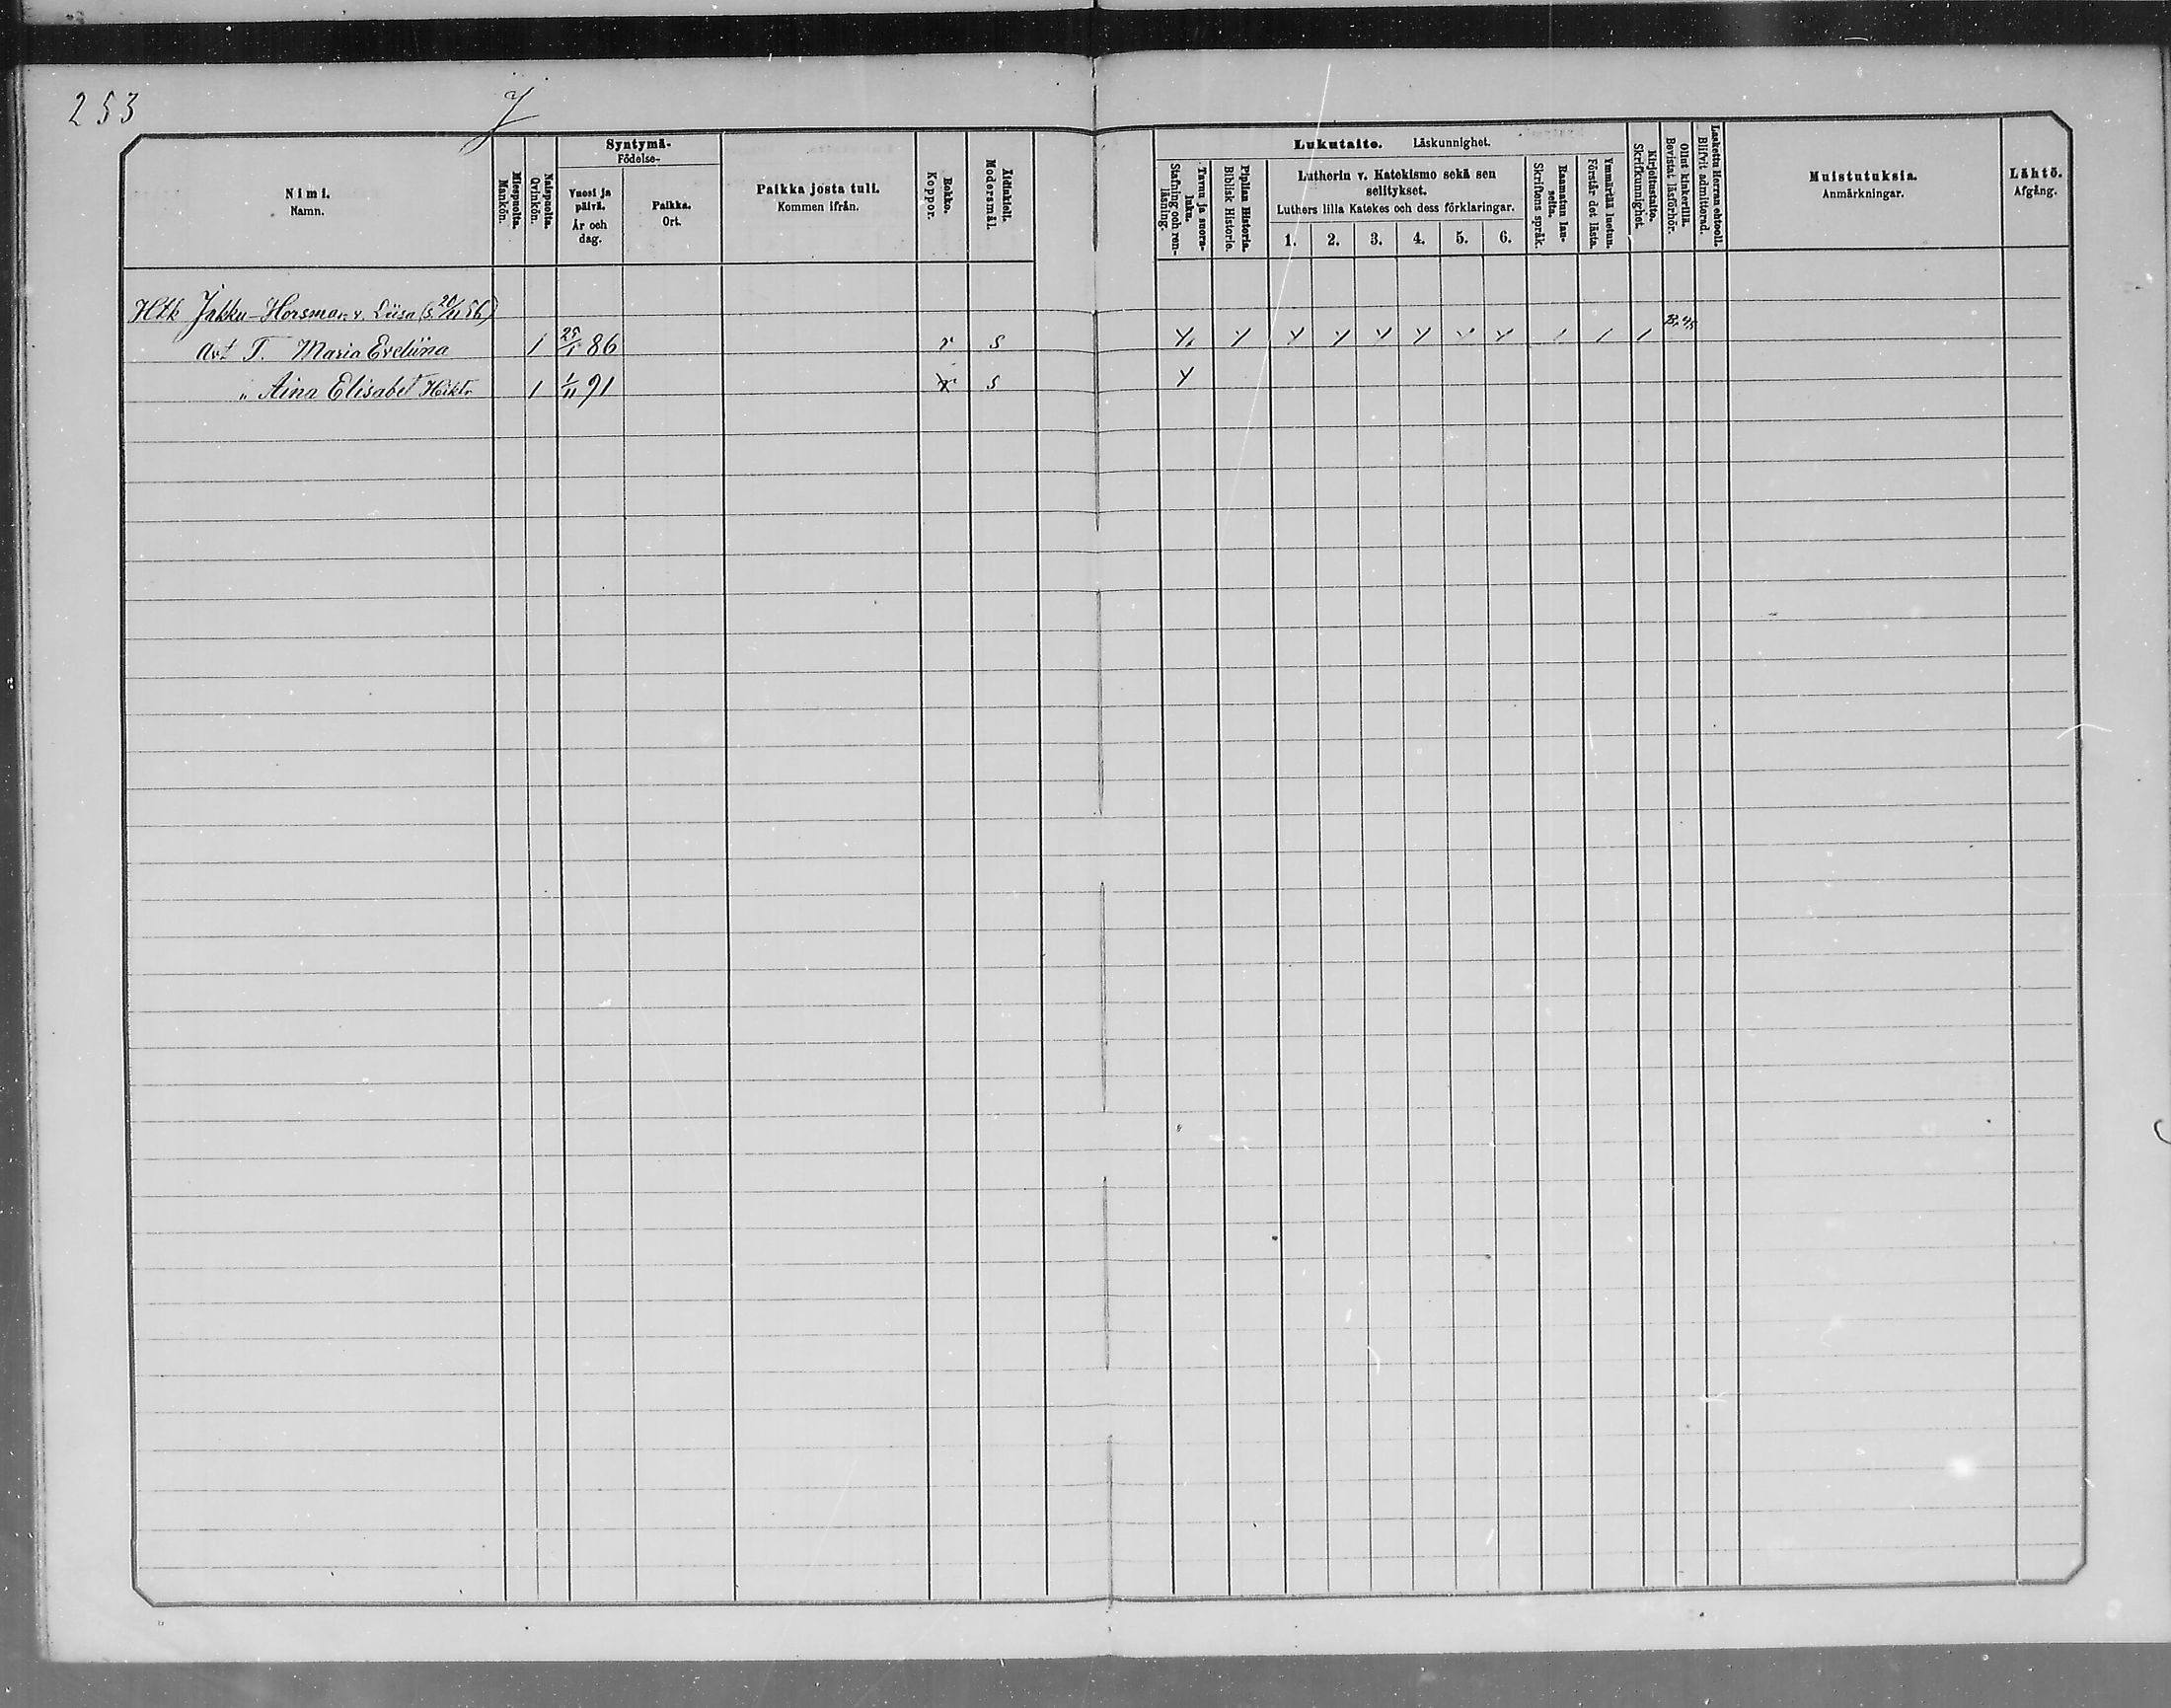 253 J
Syntymä-
Födelse-
Nimi.
Namn.
Miespuolia.
Mankön.
Naispuolia.
Qvinkön.
Vuosi ja päivä.
År och dag.
Paikka.
Ort.
Paikka josta tuli.
Kommen ifrån.
Rokko.
Koppor.
Äidinkieli.
Modersmål.
Lukutaito. Läskunnighet.
Tavuu ja suora-luku.
Stafning och ren-läsning.
Piplian Historia.
Biblisk Historie.
Lutherin v. Katekismo sekä sen selitykset.
Luthers lilla Katekes och dess förklaringar.
1. 2. 3. 4. 5. 6.
Raamatun lau-seita.
Skriftens språk.
Ymmärtää luetun.
Förstår det lästa.
Kirjoitustaito.
Skrifkunnighet.
Ollut kinkerillä.
Bevistat läsförhör.
Laskettu Herran ehtooll.
Blifvit admitterad.
Muistutuksia.
Anmärkningar.
Lähtö.
Afgång.
Htk Jakku-Horsman v. Liisa (s. 20/11 56)
Avt T. Maria Eveliina 1 25/1 86 r s
" Aina Elisabet 1 1/11 91 r s